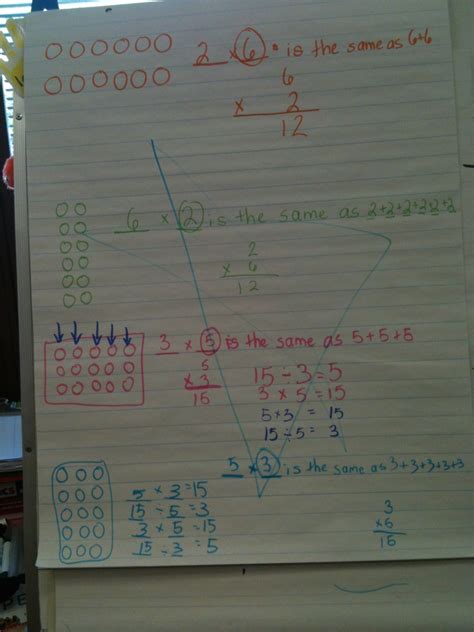 2 × 6 is the same as 6+6
6
× 2
12
6 × 2 is the same as 2+2+2+2+2+2
2
× 6
12
3 × 5 is the same as 5+5+5
5
× 3
15
15 ÷ 3 = 5
3 × 5 = 15
5 × 3 = 15
15 ÷ 5 = 3
5 × 3 is the same as 3+3+3+3+3
5 × 3 = 15
15 ÷ 5 = 3
3 × 5 = 15
15 ÷ 3 = 5
3
×6
15